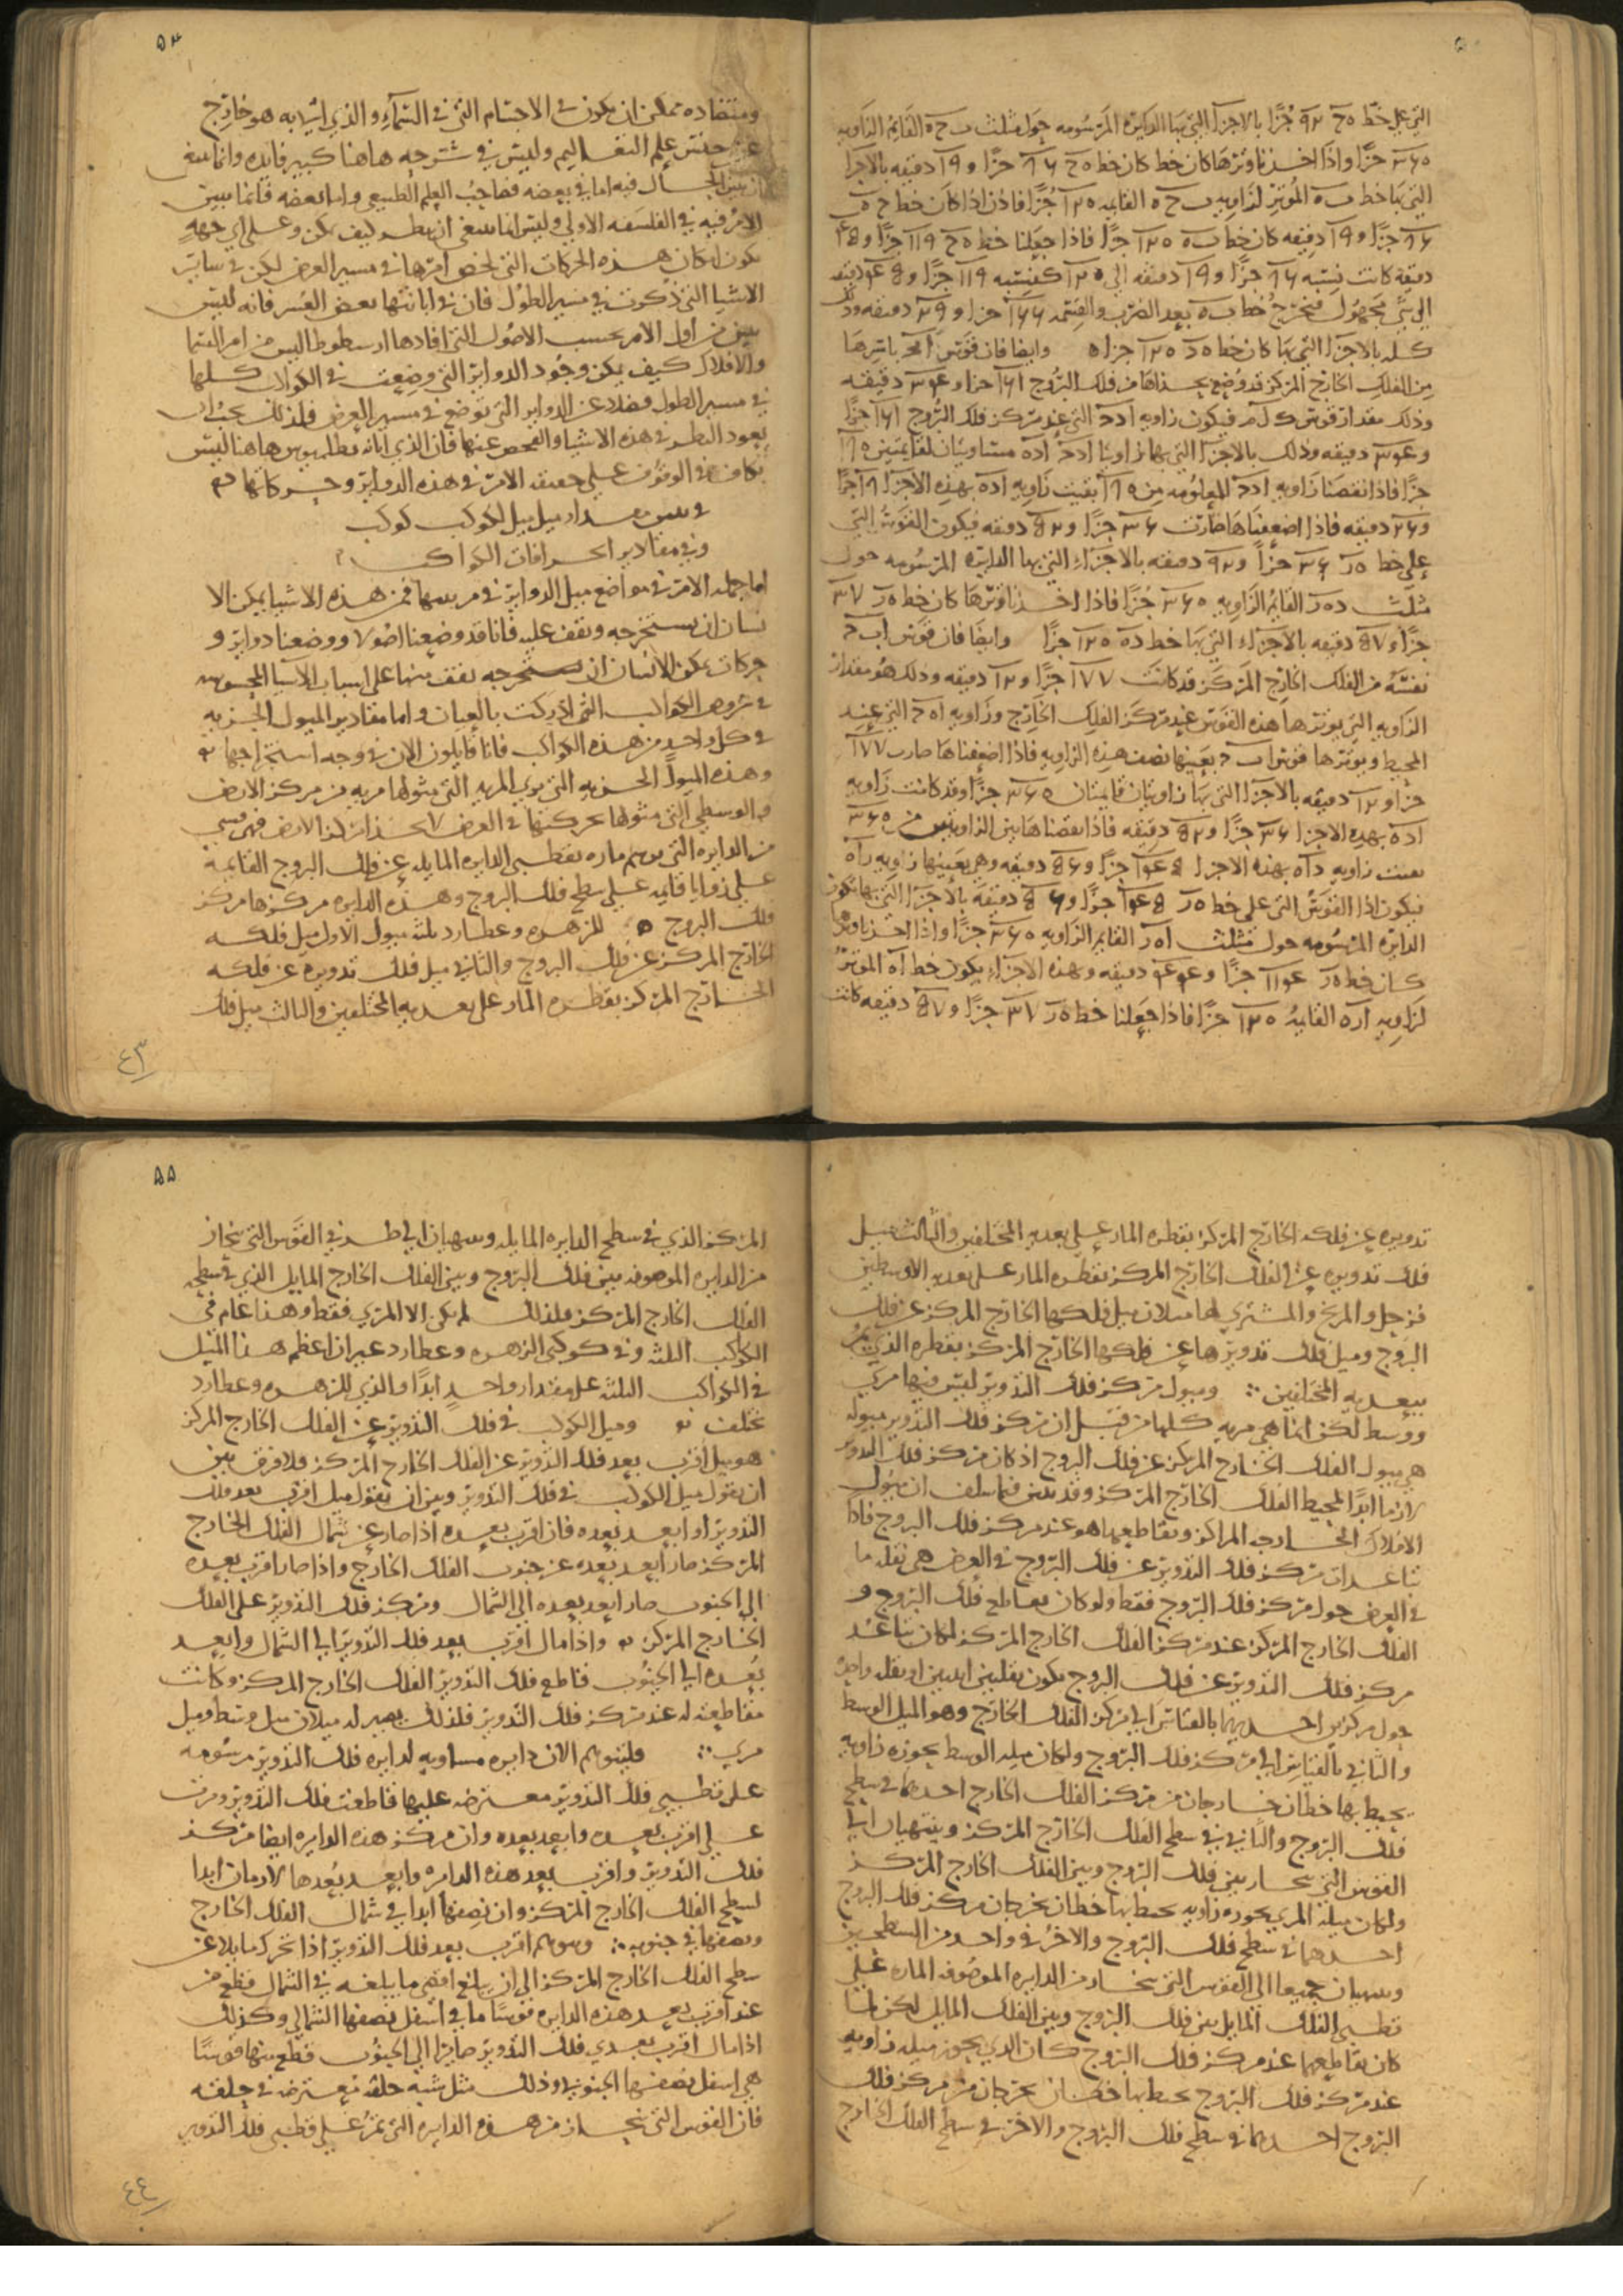 التي على خط ه ح ٩٢ جزًا بالاجزا التي بها الدايرة المرسومه حول مثلث ب ح ه القايم الزاويه
٣٦٠ جزًا واذا اخذنا وترها كان خط ه ح ٨٦ جزًا و١٩ دقيقه بالاجزا
التي بها خط ب ه الموتر لزاويه ب ح ه القايمه ١٢٠ جزًا فاذن اذا كان خط ح ه
جزًا و١٩ دقيقه كان خط ب ه ١٢٠ جزًا فاذا جعلنا خط ه ح ١١٩ جزًا
دقيقه كانت نسبه جزًا و١٩ دقيقه الى ١٢٠ كنسبه ١١٩ جزًا
الى شي مجهول فيخرج خط ب ه بعد الضرب والقسمه ١٦٦ جزا و٢٩ دقيقه وذلك
كله بالاجزا التي بها كان خط ه د ١٢٠ جزا وايضا فان قوس باسرها
من الفلك الخارج المركز قد وضع بحذاها من فلك البروج ١٦١ جزا و٣٤ دقيقه
وذلك مقدار قوس فيكون زاويه ا د ح التي عند مركز فلك البروج ١٦١ جزًا
و٣٤ دقيقه وذلك بالاجزا التي بها زاويتا ا د ح ا د ه مساويتان لقايمتين ١٨٠
جزًا فاذا نقصنا زاويه ا د ح المعلومه من ١٨٠ بقيت زاويه ا د ه بهذه الاجزا ١٨ جزًا
و٢٦ دقيقه فاذا اضعفناها صارت ٣٦ جزًا و٥٢ دقيقه فيكون القوس التي
على خط ه ر ٣٦ جزًا و٥٢ دقيقه بالاجزاء التي بها الدايره المرسومه حول
مثلث د ه ر القايم الزاويه ٣٦٠ جزًا فاذا اخذنا وترها كان خط ه ر ٣٧
جزًا و٥٧ دقيقه بالاجزاء التي بها خط د ه ١٢٠ جزًا وايضا فان قوس ا ب ح
نفسه من الفلك الخارج المركز قد كانت ١٧٧ جزًا و١٢ دقيقه وذلك هو مقدار
الزاويه التي يوترها هذه القوس عند مركز الفلك الخارج وزاويه ا ه ح التي عند
المحيط ويوترها قوس ا ب ح بعينها نصف هذه الزاويه فاذا اضعفناها صارت ١٧٧
جزا و١٢ دقيقه بالاجزا التي بها زاويتان قايمتان ٣٦٠ جزًا وقد كانت زاويه
ا د ه بهذه الاجزا ٣٦ جزًا و٥٢ دقيقه فاذا نقصنا هاتين الزاويتين من ٣٦٠
بقيت زاويه د ا ه بهذه الاجزا ١٤٥ جزًا و٥٦ دقيقه وهي بعينها زاويه ر ا ه
فيكون اذا القوس التي على خط ه ر ١٤٥ جزًا و٥٦ دقيقه بالاجزا التي بها تكون
الدايره المرسومه حول مثلث ا ه ر القايم الزاويه ٣٦٠ جزًا واذا اخذنا وترها
كان خط ه ر ١١٤ جزًا و٤٤ دقيقه وبهذه الاجزاء يكون خط ا ه الموتر
لزاويه ا ر ه القايمه ١٢٠ جزًا فاذا جعلنا خط ه ر ٣٧ جزًا و٥٧ دقيقه كانت
٥٤
ومتضاده تمكن ان يكون في الاجسام التي في السماء والذي اشر به هو خارج
عن جنس علم التعاليم وليس في شرحه هاهنا كبير فايده وانما ينبغي
ان يبين الحال فيه اما في بعضه فصاحب العلم الطبيعي واما بعضه فانما يبين
الامر فيه في الفلسفه الاولى وليس انما ينبغي ان ينظر كيف يمكن وعلى اي جهه
يكون امكان هذه الحركات التي تخص امرها في مسير العرض لكن في ساير
الاشيا التي ذكرت في مسير الطول فان في ابانتها بعض العسر فانه ليس
يبين من اول الامر بحسب الاصول التي افادها ارسطوطاليس من امر السما
والافلاك كيف يمكن وجود الدواير التي وضعت في الكواكب كلها
في مسير الطول فضلا عن الدواير التي توضع في مسير العرض فلذلك يجب ان
يعود النظر في هذه الاشيا والفحص عنها فان الذي اتانه بطلميوس هاهنا ليس
بكاف في الوقوف على حقيقه الامر في هذه الدواير وحركاتها
في تبيين مقدار ميل ميل لكوكب كوكب
وفي مقادير انحرافات الكواكب
اما جمله الامر في مواضع ميل الدواير في مراتبها فمن هذه الاشيا يمكن الا
نسان ان يستخرجه ونقف عليه فانا قد وضعنا اصولا ووضعنا دواير و
حركات يمكن الانسان ان يستخرجه يقف منها على اسباب الاشيا المحسوسه
في عروض الكواكب التي ادركت بالعيان واما مقادير الميول الجزييه
في كل واحد من هذه الكواكب فانا قايلون الان في وجه استخراجها
وهذه الميول الجزييه التي نوي المريه التي مثولها مريه من مركز الارض
والوسطى التي مثولها بحركتها في العرض لا بحذا مركز الارض فهي قسي
من الدايره التي توهم ماره بقطبي الدايره المايله عن فلك البروج القايمه
على زوايا قايمه على سطح فلك البروج وهذه الدايره مركزها مركز
فلك البروج للزهره وعطارد ثلثه ميول الاول ميل فلكه
الخارج المركز عن فلك البروج والثاني ميل فلك تدويره عن فلكه
الخارج المركز بقطره المار على بعديه المختلفين والثالث ميل فلك
٤٣
تدويره عن فلكه الخارج المركز بقطره المار على بعديه المختلفين والثالث ميل
فلك تدويره عن الفلك الخارج المركز بقطره المار على بعديه الاوسطين
فزحل والمريخ والمشتري لها ميلان ميل فلكها الخارج المركز عن فلك
البروج وميل فلك تدويرها عن فلكها الخارج المركز بقطره الذي يمر
ببعديه المختلفين وميول مركز فلك التدوير ليس فيها مري
ووسط لكن انما هي مريه كلها من قبل ان مركز فلك التدوير ميوله
هي ميول الفلك الخارج المركز عن فلك البروج اذ كان مركز فلك التدوير
لازما ابدًا لمحيط الفلك الخارج المركز وقد تبين فيما سلف ان ميول
الافلاك الخارجه المراكز وتقاطعها هو عند مركز فلك البروج فاذا
تباعدات مركز فلك التدوير عن فلك البروج في العرض هي نقله ما
في العرض حول مركز فلك البروج فقط ولو كان تقاطع فلك البروج و
الفلك الخارج المركز عند مركز الفلك الخارج المركز لكان تباعد
مركز فلك التدوير عن فلك البروج يكون بنقلتين اثنتين او بنقله واحده
حول مركزين احدهما بالقياس الى مركز الفلك الخارج وهو الميل الوسط
والثاني بالقياس الى مركز فلك البروج ولكان ميله الوسط يحوزه زاويه
يحيط بها خطان خارجان من مركز الفلك الخارج احدهما في سطح
فلك البروج والثاني في سطح الفلك الخارج المركز وينتهيان الى
القوس التي تنحاز بين فلك البروج وبين الفلك الخارج المركز
ولكان ميله المري يحوزه زاويه يحيط بها خطان يخرجان مركز فلك البروج
احدهما في سطح فلك البروج والاخر في واحد من السطحين
وينتهيان جميعا الى القوس التي تنحاز من الدايره الموصوفه الماره على
قطبي الفلك المايل بين فلك البروج وبين الفلك المايل لكن لما
كان تقاطعهما عند مركز فلك البروج كان الذي يحوز ميله زاويه
عند مركز فلك البروج يحيط بها خطان يخرجان من مركز فلك
البروج احدهما في سطح فلك البروج والاخر في سطح الفلك الخارج
٥٥
المركز الذي في سطح الدايره المايله وينتهيان الى طرفي القوس التي تنحاز
من الدايره الموصوفه بين فلك البروج وبين الفلك الخارج المايل الذي في سطحه
الفلك الخارج المركز فلذلك لم يكن الا المري فقط وهذا عام في
الكواكب الثلثه وفي كوكبي الزهره وعطارد غير ان اعظم هذا الميل
في الكواكب الثلثه على مقدار واحد ابدًا والذي للزهره وعطارد
مختلف وميل الكوكب في فلك التدوير عن الفلك الخارج المركز
هو ميل اقرب بعد فلك التدوير عن الفلك الخارج المركز فلا فرق بين
ان نقول ميل الكوكب في فلك التدوير وبين ان نقول ميل اقرب بعد فلك
التدوير او ابعد بعده فان اقرب بعده اذا صار عن شمال الفلك الخارج
المركز صار ابعد بعده عن جنوب الفلك الخارج واذا صار اقرب بعده
الى الجنوب صار ابعد بعده الى الشمال ومركز فلك التدوير على الفلك
الخارج المركز واذا مال اقرب بعد فلك التدوير الى الشمال وابعد
بعده الى الجنوب قاطع فلك التدوير الفلك الخارج المركز وكانت
مقاطعته له عند مركز فلك التدوير فلذلك يصير له ميلان ميل وسط وميل
مري فليتوهم الان دايره مساويه لدايره فلك التدوير مرسومه
على قطبي فلك التدوير معترضه عليها قاطعت فلك التدوير ومرت
على اقرب بعده وابعد بعده وان مركز هذه الدايره ايضا مركز
فلك التدوير واقرب بعد هذه الدايره وابعد بعدها لازمان ابدا
لسطح الفلك الخارج المركز وان نصفها ابدا في شمال الفلك الخارج
ونصفها في جنوبه ونتوهم اقرب بعد فلك التدوير اذا تحرك مايلا عن
سطح الفلك الخارج المركز الى ان يبلغ اقصى ما يبلغه في الشمال قطع من
عند اقرب بعد هذه الدايره قوسًا ما في اسفل نصفها الشمالي وكذلك
اذا مال اقرب بعدي فلك التدوير صايرا الى الجنوب قطع منها قوسًا
هي اسفل نصفها الجنوبي وذلك مثل شبه حلقه معترضه في حلقه
فان القوس التي تنحاز من هذه الدايره التي تمر على قطبي فلك التدوير
٤٤